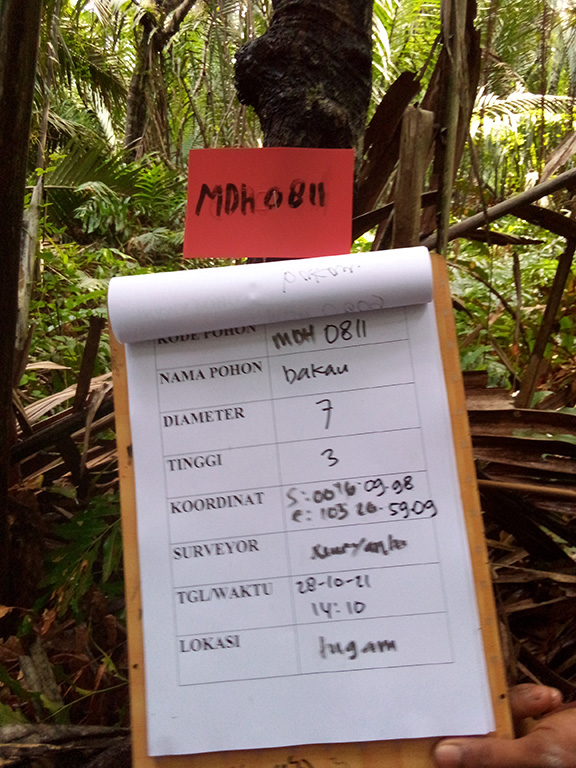 MDH 0811
KODE POHON MDH 0811
NAMA POHON bakau
DIAMETER 7
TINGGI 3
KOORDINAT S:0076.09.98
e: 103 26.59.09
SURVEYOR
TGL/WAKTU 28-10-21
14:10
LOKASI tugam